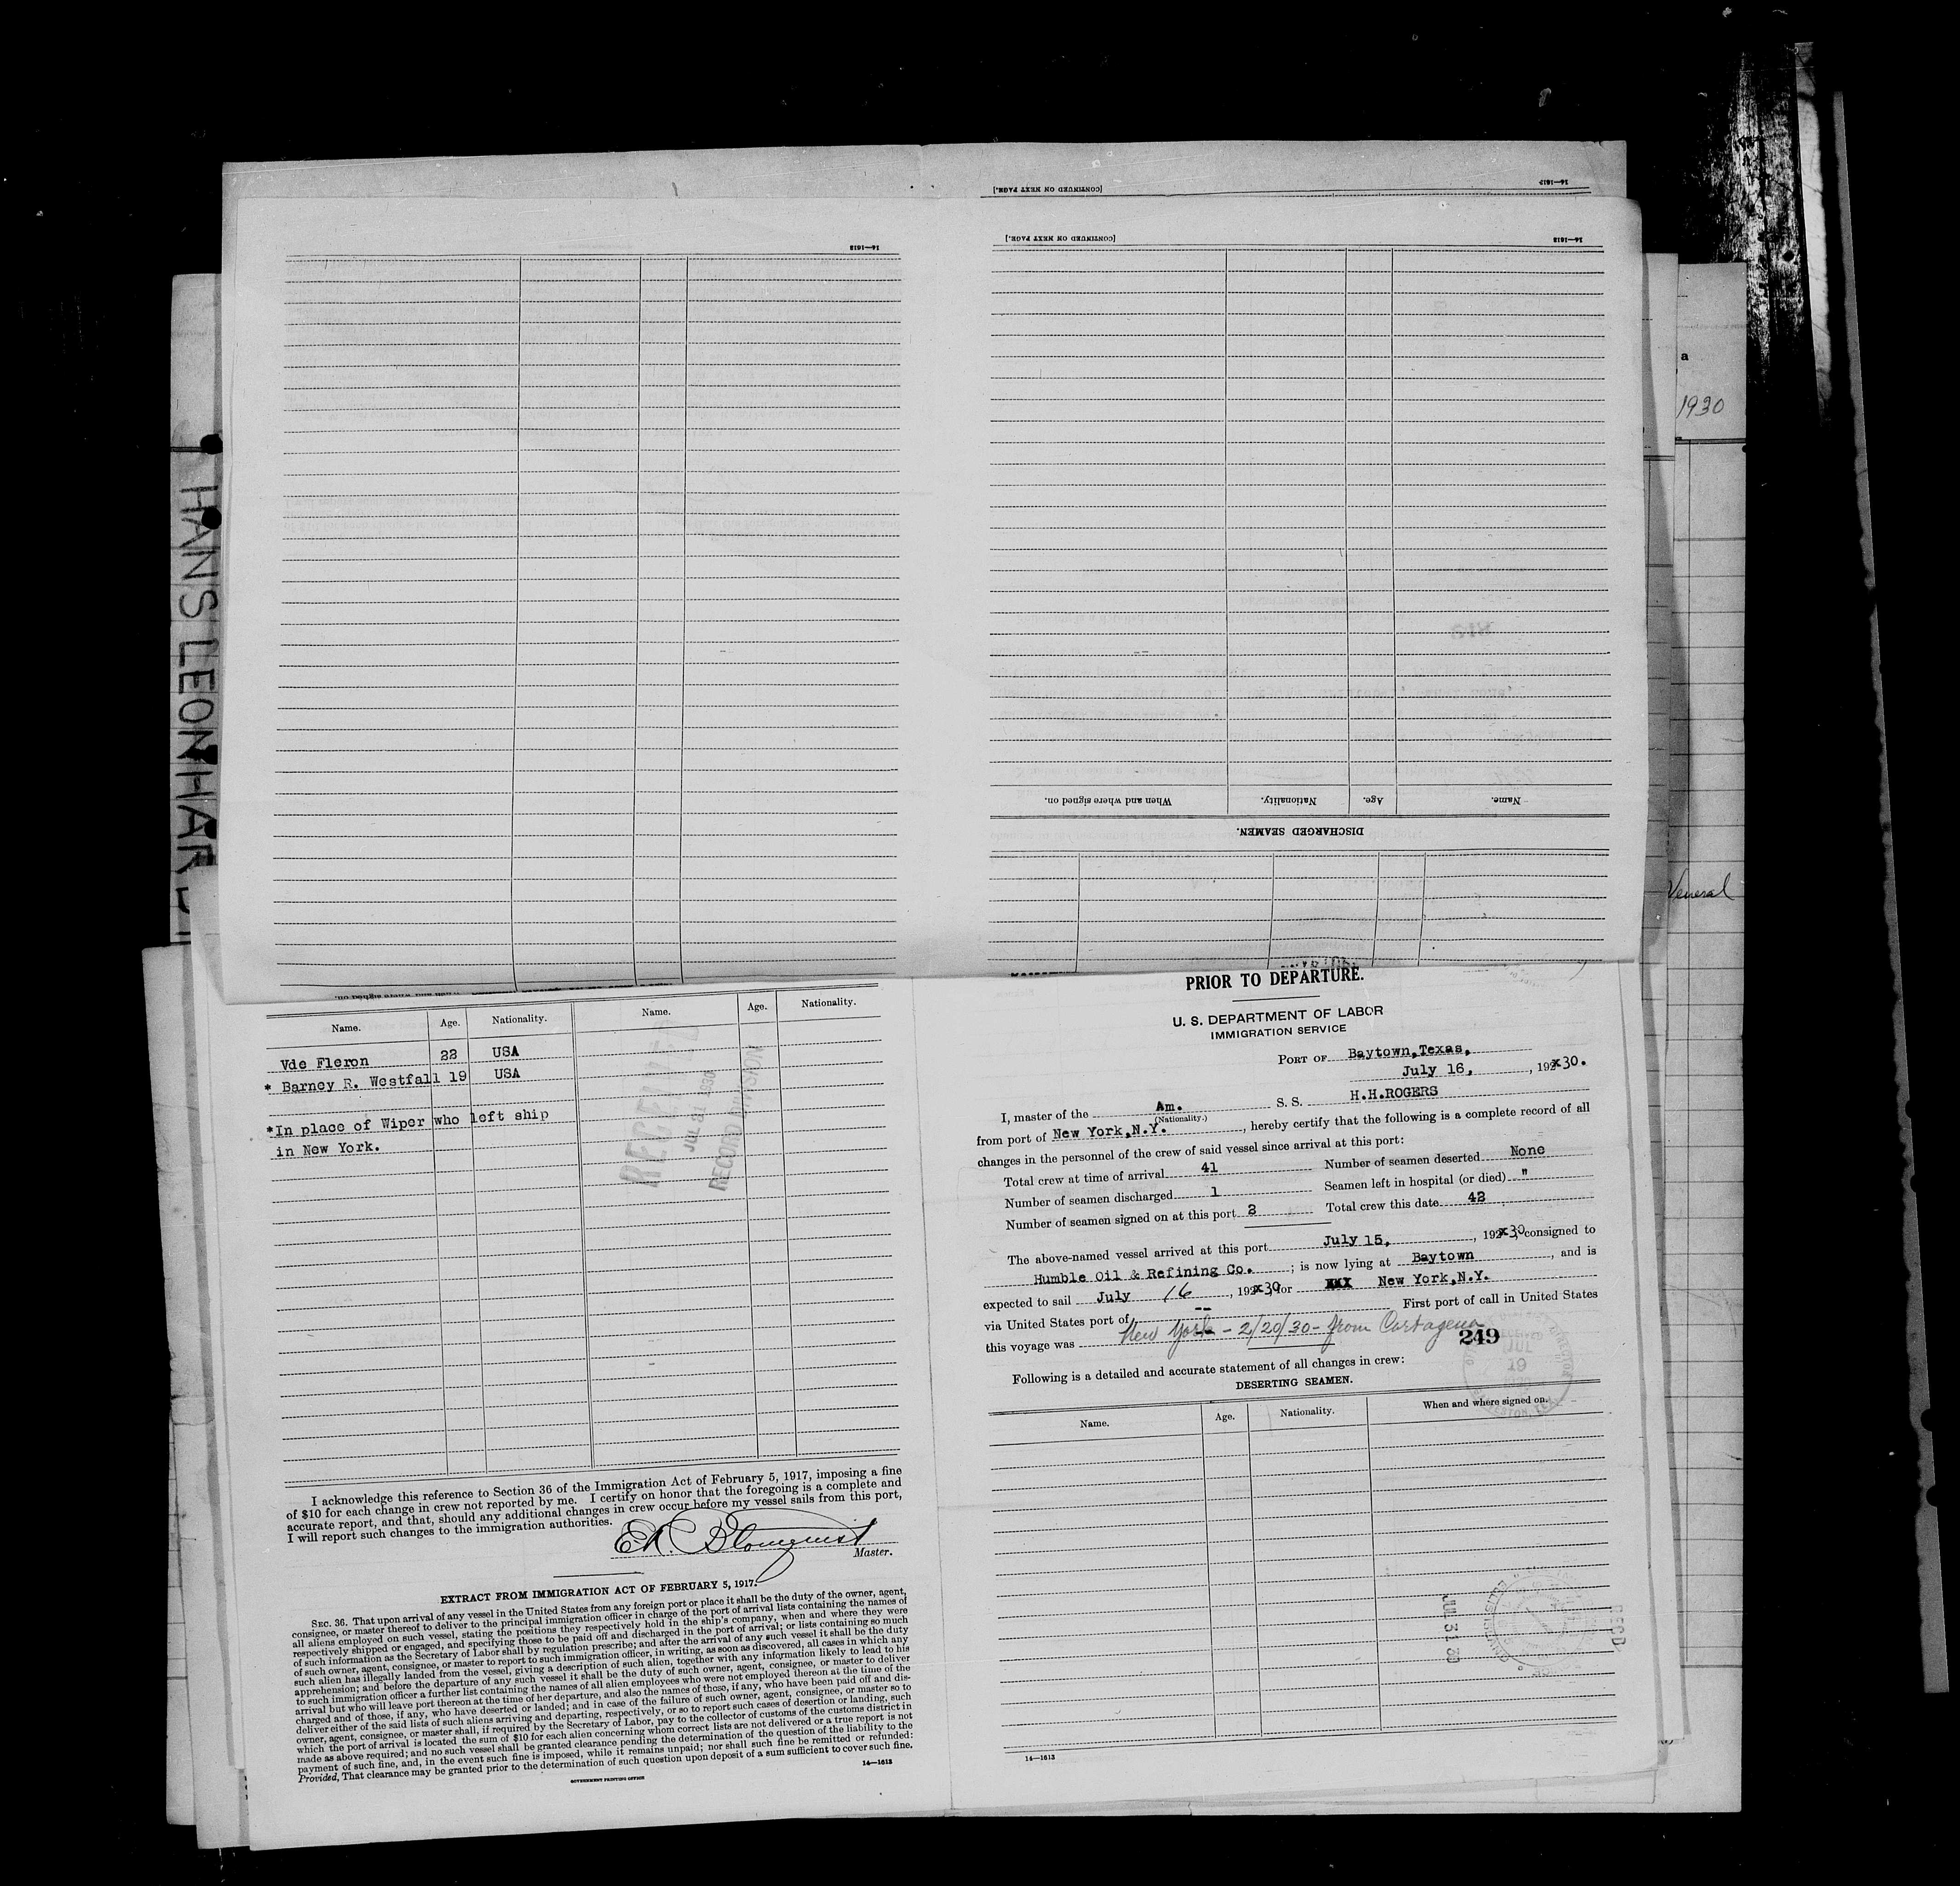 [CONTINUED ON NEXT PAGE.]
14—1613
[CONTINUED ON NEXT PAGE.]
14—1613
14—1613
a
1930
HANS LEONHAR
General
When and where signed on.
Nationality.
Age.
Name.
DISCHARGED SEAMEN.
Name. Age. Nationality. Name. Age. Nationality.
Vde Fleron 22 USA
* Barney R. Westfall 19 USA
*In place of Wiper who left ship
in New York.
RECEIVED
JUL 21 1930
RECORD DIVISION
I acknowledge this reference to Section 36 of the Immigration Act of February 5, 1917, imposing a fine
of $10 for each change in crew not reported by me. I certify on honor that the foregoing is a complete and
accurate report, and that, should any additional changes in crew occur before my vessel sails from this port,
I will report such changes to the immigration authorities.
Blomquist
Master.
EXTRACT FROM IMMIGRATION ACT OF FEBRUARY 5, 1917.
SEC. 36. That upon arrival of any vessel in the United States from any foreign port or place it shall be the duty of the owner, agent,
consignee, or master thereof to deliver to the principal immigration officer in charge of the port of arrival lists containing the names of
all aliens employed on such vessel, stating the positions they respectively hold in the ship's company, when and where they were
respectively shipped or engaged, and specifying those to be paid off and discharged in the port of arrival; or lists containing so much
of such information as the Secretary of Labor shall by regulation prescribe; and after the arrival of any such vessel it shall be the duty
of such owner, agent, consignee, or master to report to such immigration officer, in writing, as soon as discovered, all cases in which any
such alien has illegally landed from the vessel, giving a description of such alien, together with any information likely to lead to his
apprehension; and before the departure of any such vessel it shall be the duty of such owner, agent, consignee, or master to deliver
to such immigration officer a further list containing the names of all alien employees who were not employed thereon at the time of the
arrival but who will leave port thereon at the time of her departure, and also the names of those, if any, who have been paid off and dis-
charged and of those, if any, who have deserted or landed; and in case of the failure of such owner, agent, consignee, or master so to
deliver either of the said lists of such aliens arriving and departing, respectively, or so to report such cases of desertion or landing, such
owner, agent, consignee, or master shall, if required by the Secretary of Labor, pay to the collector of customs of the customs district in
which the port of arrival is located the sum of $10 for each alien concerning whom correct lists are not delivered or a true report is not
made as above required; and no such vessel shall be granted clearance pending the determination of the question of the liability to the
payment of such fine, and, in the event such fine is imposed, while it remains unpaid; nor shall such fine be remitted or refunded:
Provided, That clearance may be granted prior to the determination of such question upon deposit of a sum sufficient to cover such fine.
GOVERNMENT PRINTING OFFICE
14—1613
PRIOR TO DEPARTURE.
U. S. DEPARTMENT OF LABOR
IMMIGRATION SERVICE
PORT OF Baytown,Texas,
July 16, , 192x30.
I, master of the Am. S. S. H.H.ROGERS
(Nationality.)
from port of New York,N.Y. , hereby certify that the following is a complete record of all
changes in the personnel of the crew of said vessel since arrival at this port:
Total crew at time of arrival 41 Number of seamen deserted None
Number of seamen discharged 1 Seamen left in hospital (or died) "
Number of seamen signed on at this port 2 Total crew this date 42
The above-named vessel arrived at this port July 15, , 192x30 consigned to
Humble Oil & Refining Co. ; is now lying at Baytown , and is
expected to sail July 16 , 192x30 for XXX New York,N.Y.
via United States port of -- First port of call in United States
this voyage was New York - 2/20/30 - from Cartagena
249
Following is a detailed and accurate statement of all changes in crew:
DESERTING SEAMEN.
Name. Age. Nationality. When and where signed on.
JUL
19
JUL 31 30
RECD
14—1613